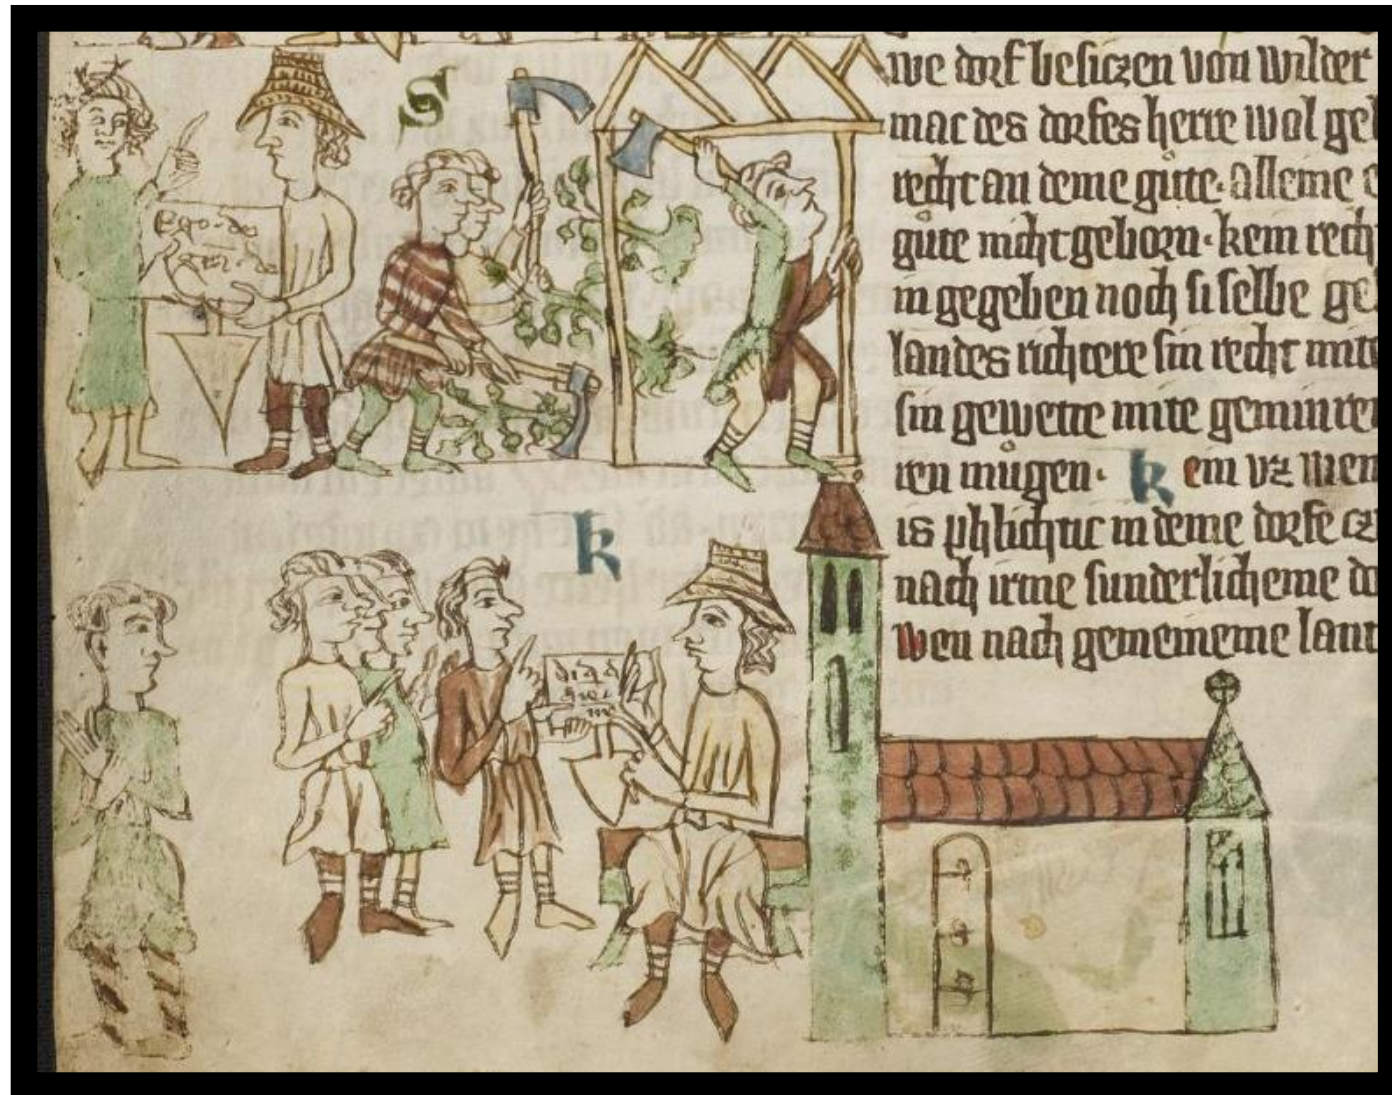 S
Ego·de
we dorf besiczen von wilder
mac des dorfes herre wol ge
recht an deme gůte· alleine e
gůte nicht geborn· kein rech
in gegeben noch si selbe ge
landes richtere sin recht mite
sin gewette mite geminren
ren můgen· k ein vz wen
is phlichtic in deme dorfe cz
nach irme sunderlicheme do
wen nach gemeineme lant
k